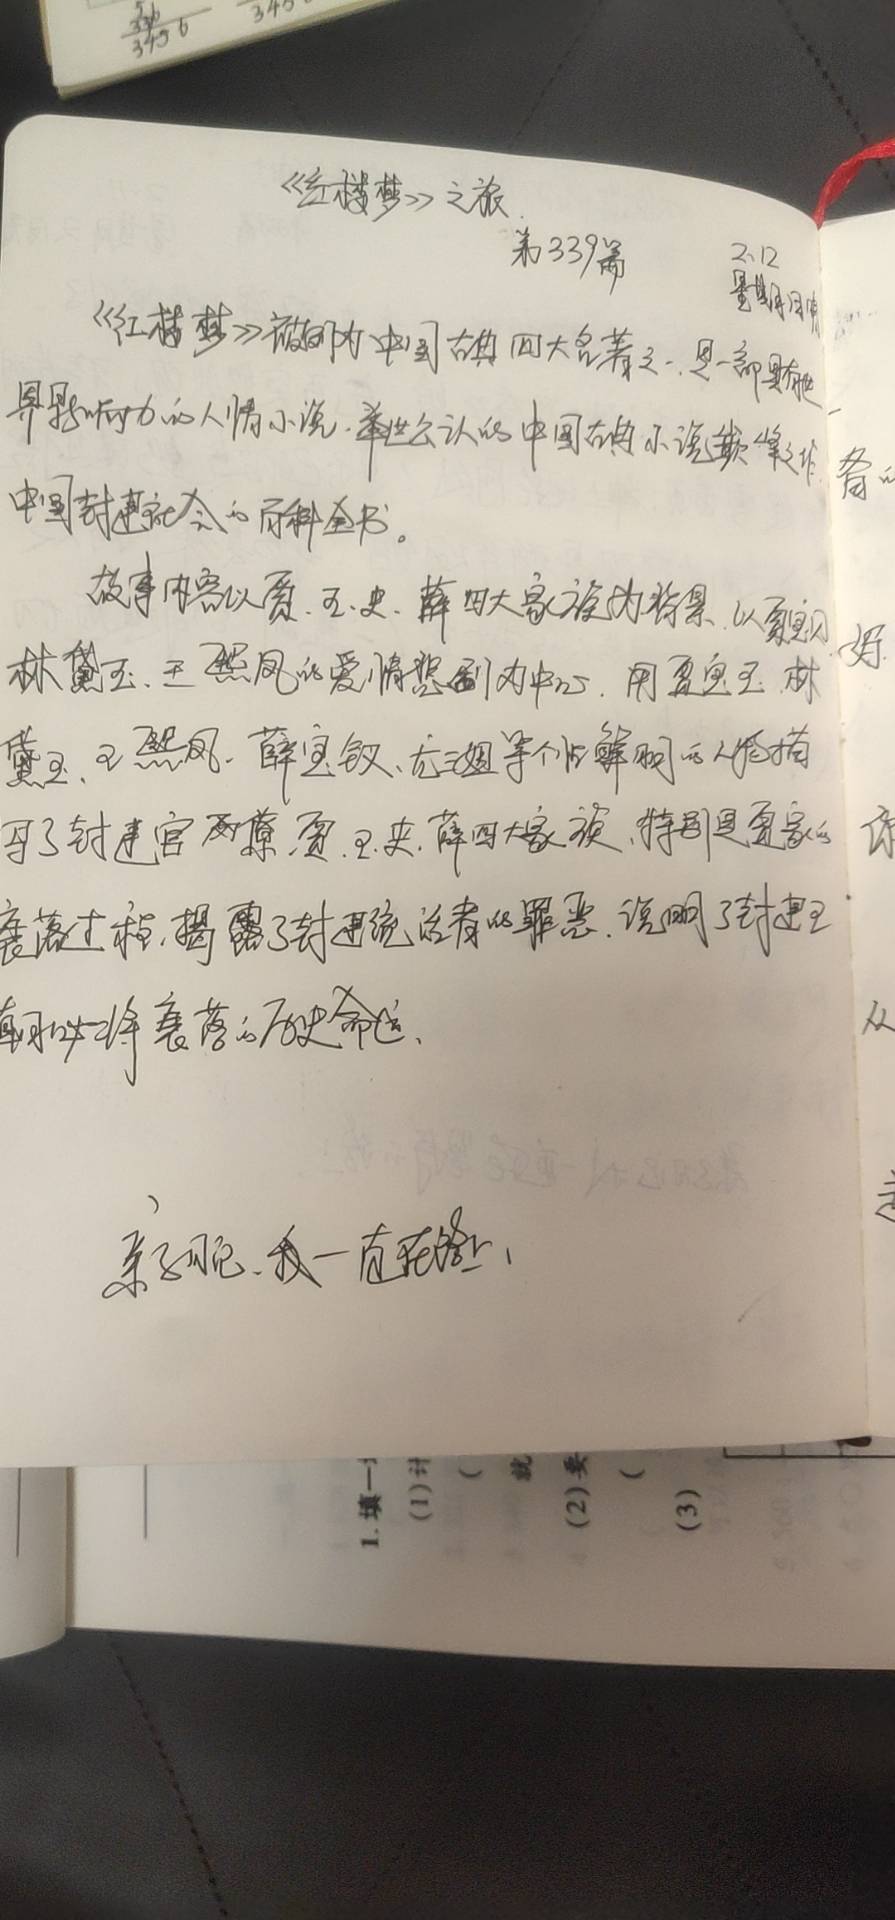 336
3456
345 6
《红楼梦》之旅.
第339篇
2.12
星期日 晴
《红楼梦》被列为中国古典四大名著之一,是一部具有世
界影响力的人情小说.举世公认的中国古典小说巅峰之作,
中国封建社会的百科全书。
故事内容以贾、王、史、薛四大家族为背景,以贾宝玉
林黛玉、王熙凤的爱情悲剧为中心,用贾宝玉、林
黛玉、王熙凤、薛宝钗、尤三姐等个性鲜明的人物描
写了封建官僚贾、王、史、薛四大家族、特别是贾家的
衰落过程,揭露了封建统治者的罪恶,说明了封建王
朝必将衰落的历史命运、
亲子日记、我一直在路上、
备的
好
从
1.填一
(1)计
(
就
(2)要
(
(3)